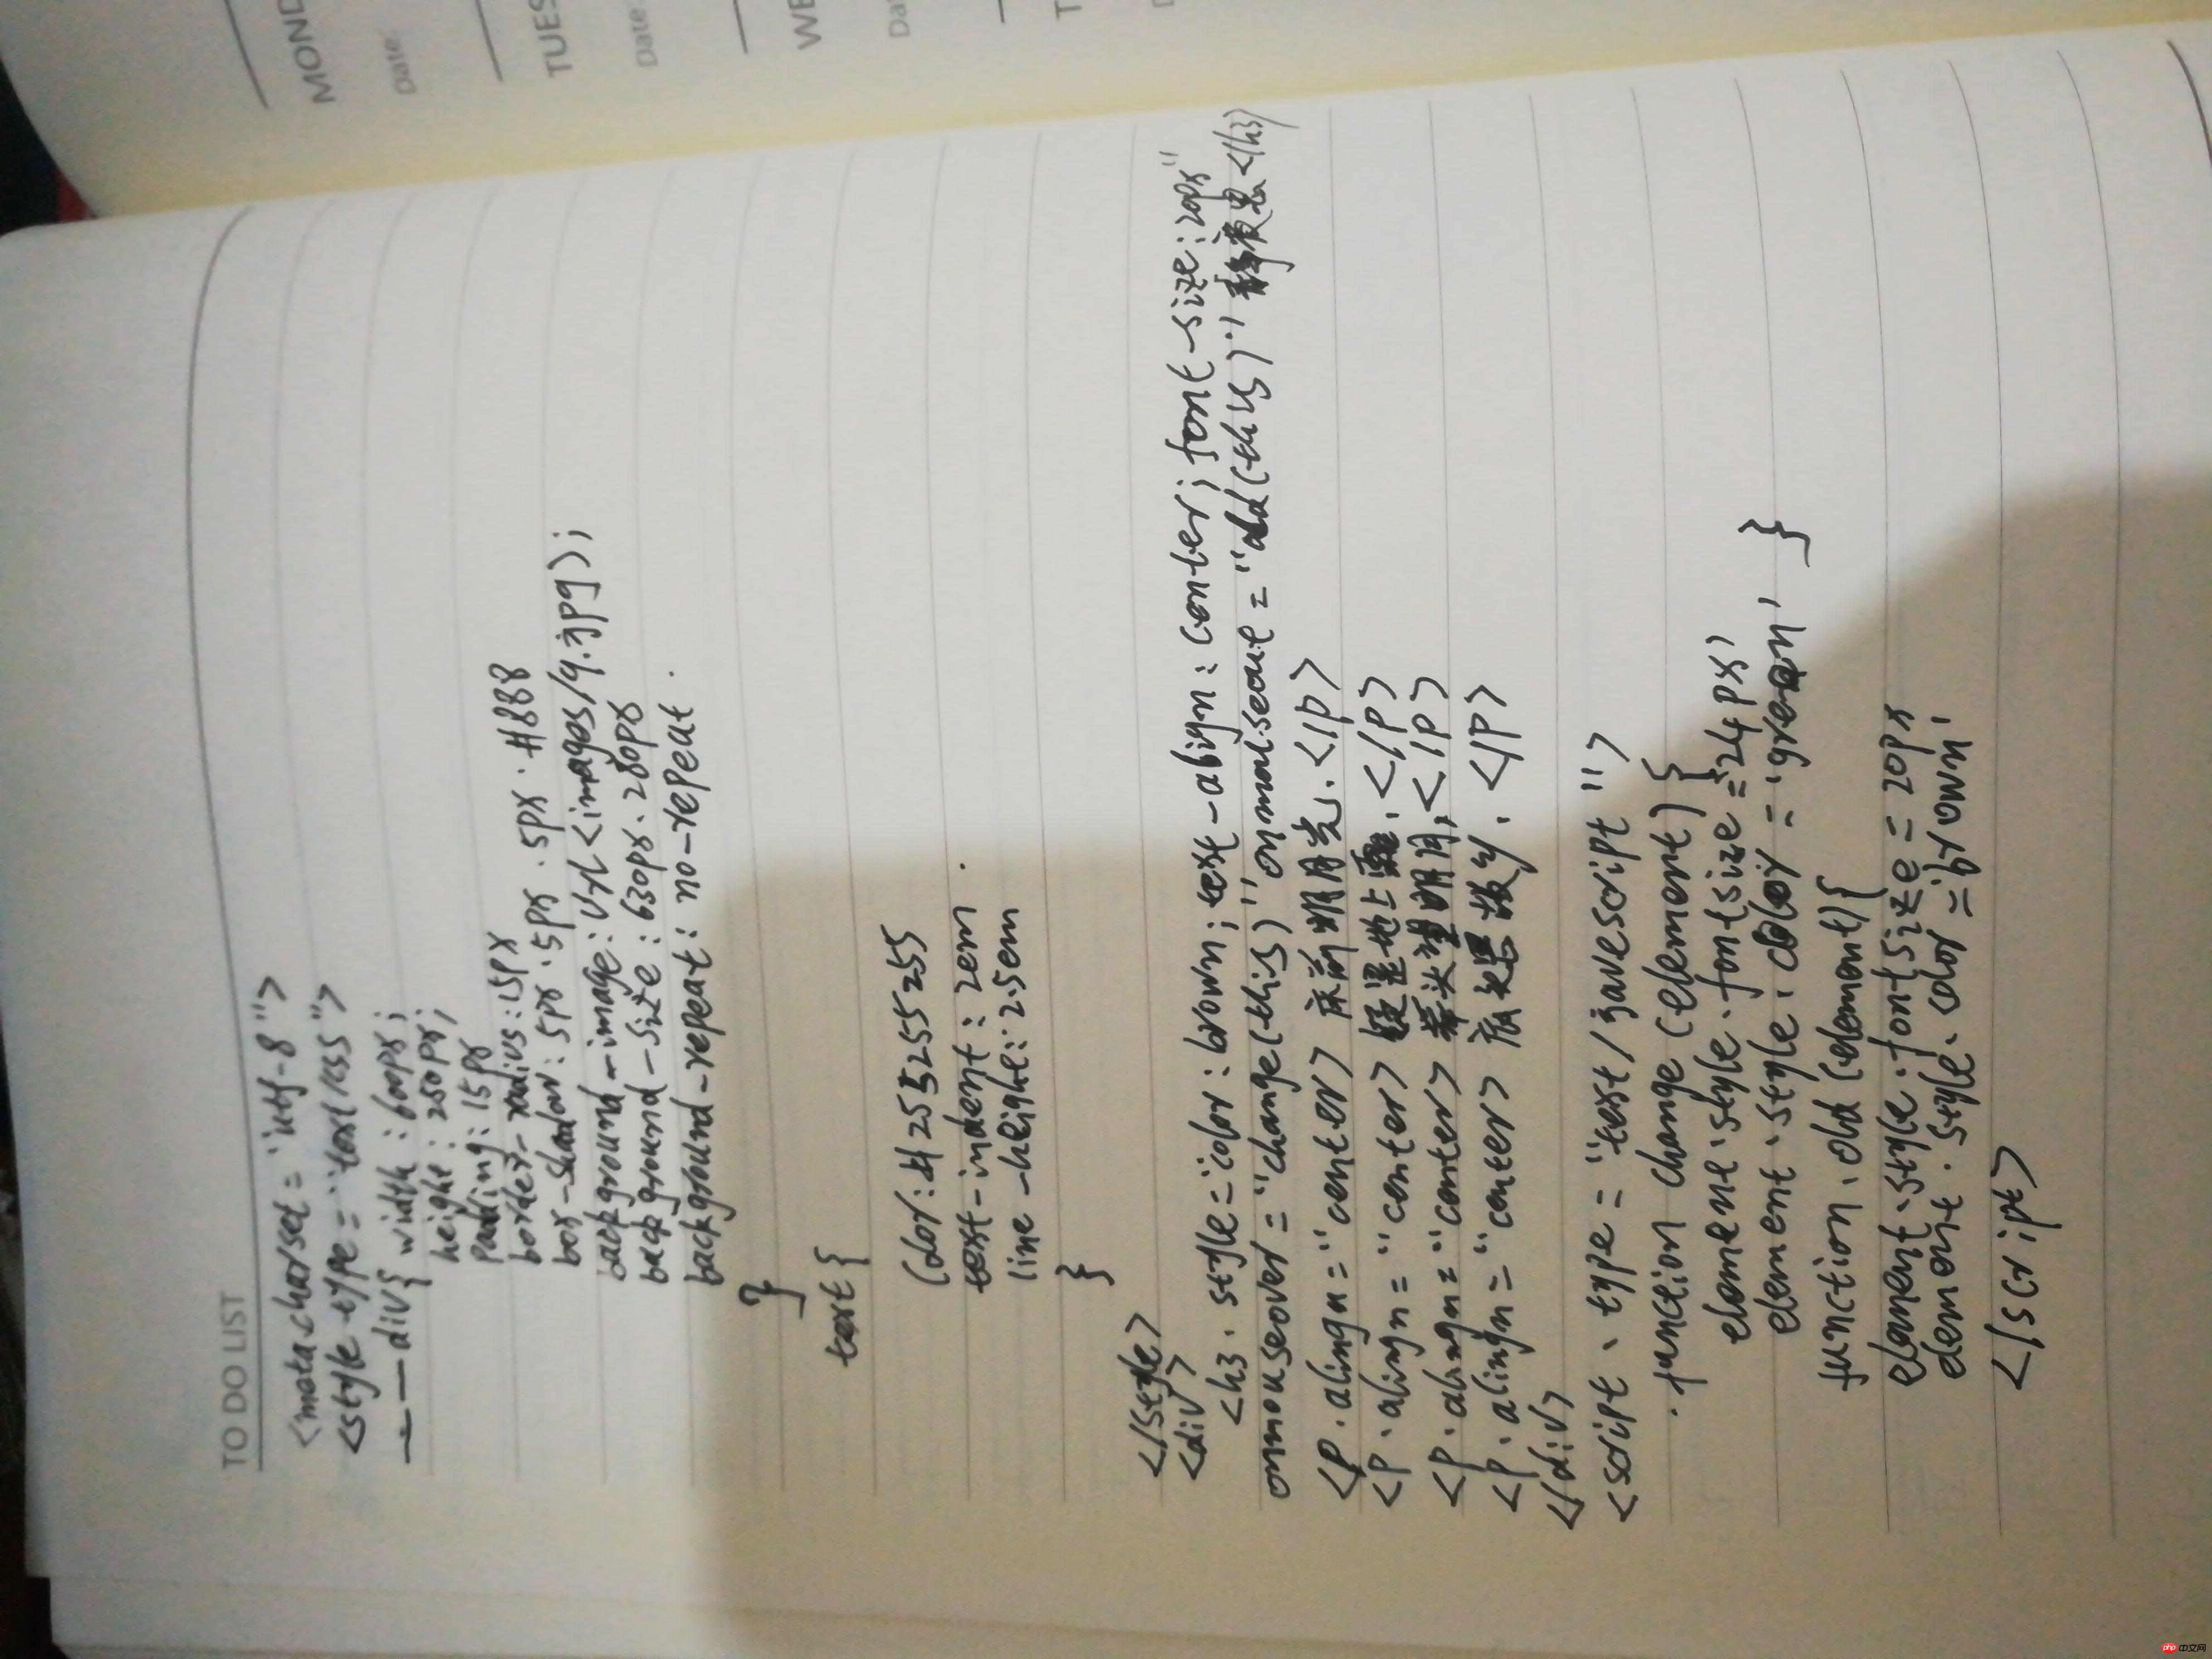 MOND
Date:
TUES
Date:
WE
Da
T
D
TO DO LIST
<meta charset="utf-8">
<style type="text/css">
div{ width:600px;
height:250px;
padding:15px
border-radius:15px
box-shadow:5px.5px.5px.#888
background-image:url<images/9.jpg);
background-size:630px.280px
background-repeat:no-repeat.
}
text{
color:#255255255
text-indent:2em.
line-height:2.5em
}
</style>
<div>
<h3.style="color:brown;text-align:center;font-size:20px"
onmouseover="change(this)" onmouseout="old(this)"静夜思</h3>
<p.alingn="center>床前明月光.</p>
<p.alingn="center>疑是地上霜.</p>
<p.alingn="center>举头望明月,</p>
<p.alingn="center>底头思故乡.</p>
</div>
<script.type="text/javescript">
.function change(element){
element.style.fontsize='24px'
element.style.color='green' }
function.old(element){
element.style.fontsize=20px
element.style.color='brown'
</script>
php中文网